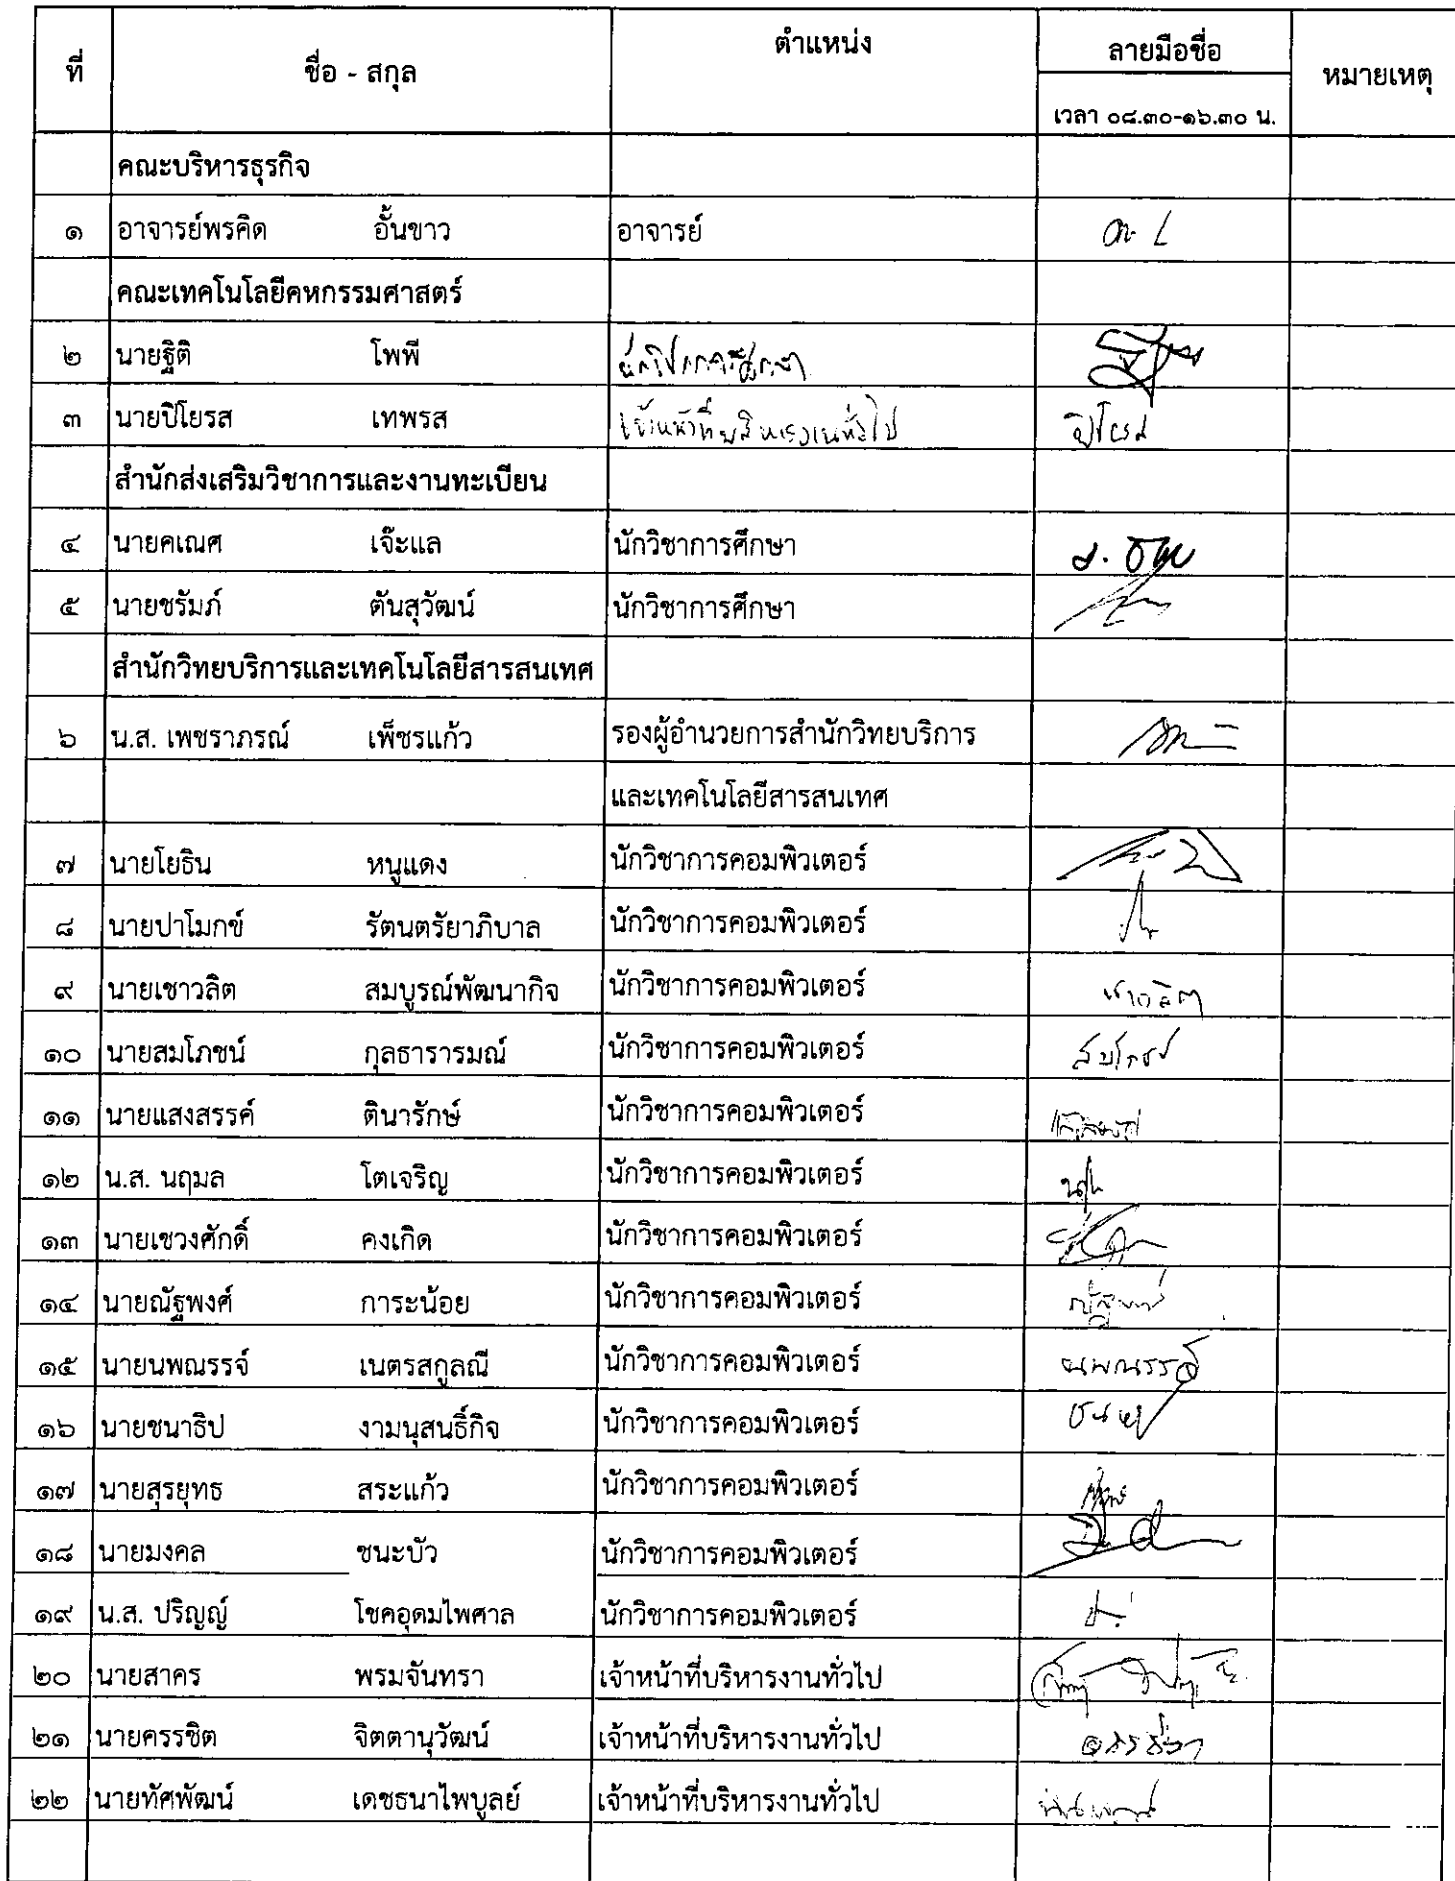 ที่ ชื่อ - สกุล ตำแหน่ง ลายมือชื่อ หมายเหตุ
เวลา ๐๘.๓๐-๑๖.๓๐ น.
คณะบริหารธุรกิจ
๑ อาจารย์พรคิด อั้นขาว อาจารย์
คณะเทคโนโลยีคหกรรมศาสตร์
๒ นายฐิติ โพพี นักวิชาการศึกษา
๓ นายปิโยรส เทพรส เจ้าหน้าที่บริหารงานทั่วไป ปิโยรส
สำนักส่งเสริมวิชาการและงานทะเบียน
๔ นายคเณศ เจ๊ะแล นักวิชาการศึกษา
๕ นายชรัมภ์ ตันสุวัฒน์ นักวิชาการศึกษา
สำนักวิทยบริการและเทคโนโลยีสารสนเทศ
๖ น.ส. เพชราภรณ์ เพ็ชรแก้ว รองผู้อำนวยการสำนักวิทยบริการ
และเทคโนโลยีสารสนเทศ
๗ นายโยธิน หนูแดง นักวิชาการคอมพิวเตอร์
๘ นายปาโมกข์ รัตนตรัยาภิบาล นักวิชาการคอมพิวเตอร์
๙ นายเชาวลิต สมบูรณ์พัฒนากิจ นักวิชาการคอมพิวเตอร์ เชาวลิต
๑๐ นายสมโภชน์ กุลธารารมณ์ นักวิชาการคอมพิวเตอร์ สมโภชน์
๑๑ นายแสงสรรค์ ตินารักษ์ นักวิชาการคอมพิวเตอร์
๑๒ น.ส. นฤมล โตเจริญ นักวิชาการคอมพิวเตอร์
๑๓ นายเชวงศักดิ์ คงเกิด นักวิชาการคอมพิวเตอร์
๑๔ นายณัฐพงศ์ การะน้อย นักวิชาการคอมพิวเตอร์ ณัฐพงศ์
๑๕ นายนพณรรจ์ เนตรสกูลณี นักวิชาการคอมพิวเตอร์ นพณรรจ์
๑๖ นายชนาธิป งามนุสนธิ์กิจ นักวิชาการคอมพิวเตอร์
๑๗ นายสุรยุทธ สระแก้ว นักวิชาการคอมพิวเตอร์
๑๘ นายมงคล ชนะบัว นักวิชาการคอมพิวเตอร์
๑๙ น.ส. ปริญญ์ โชคอุดมไพศาล นักวิชาการคอมพิวเตอร์
๒๐ นายสาคร พรมจันทรา เจ้าหน้าที่บริหารงานทั่วไป
๒๑ นายครรชิต จิตตานุวัฒน์ เจ้าหน้าที่บริหารงานทั่วไป
๒๒ นายทัศพัฒน์ เดชธนาไพบูลย์ เจ้าหน้าที่บริหารงานทั่วไป